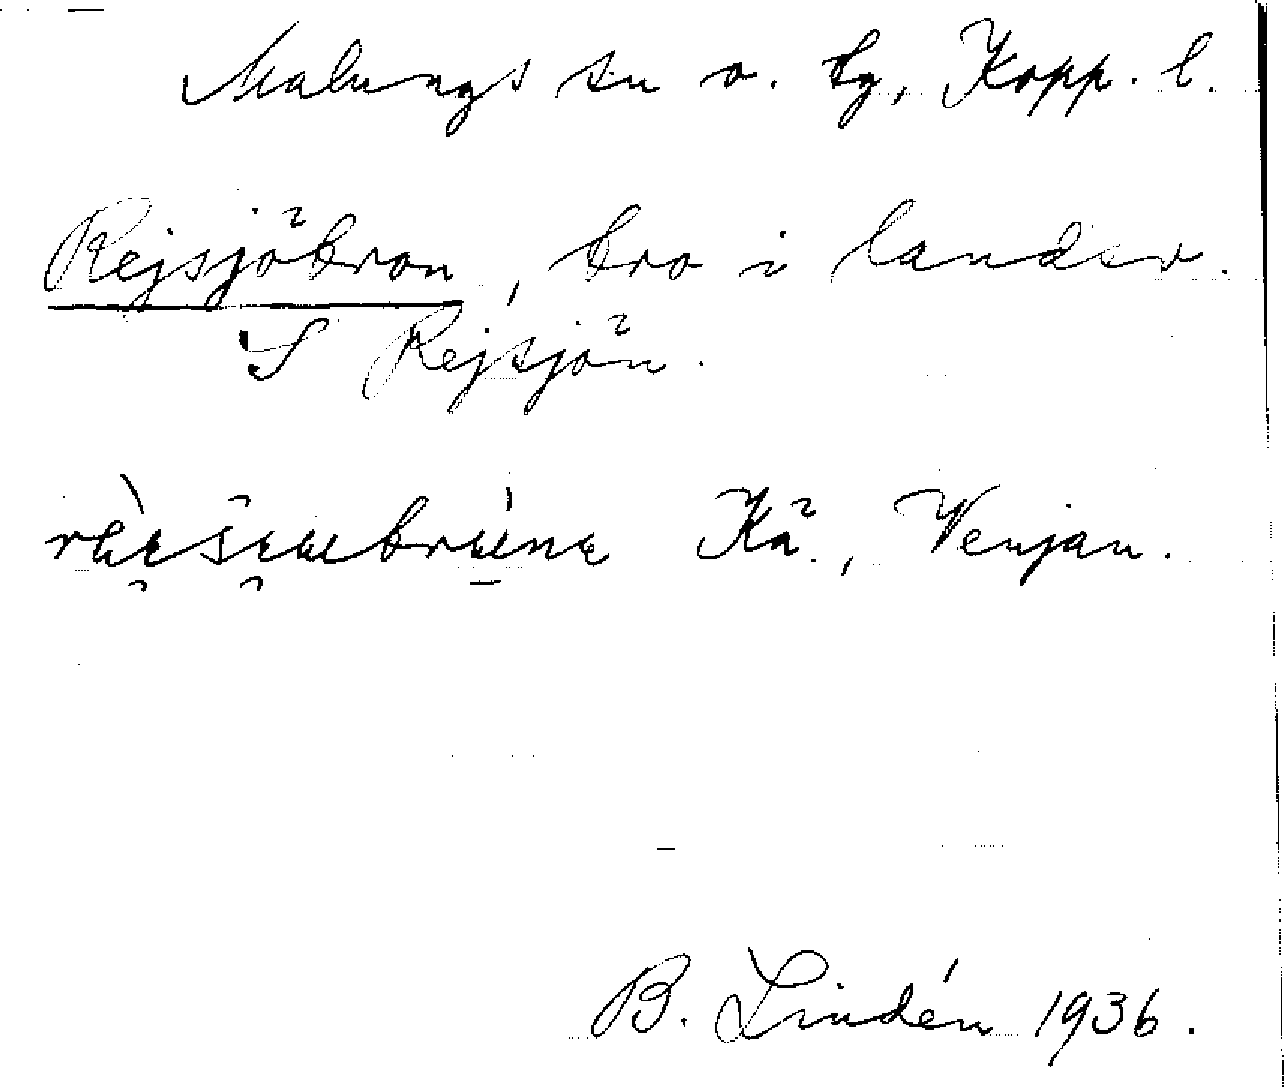 Malungs sn o. tg, Kopp. l.
Rejsjöbron, bro i landsv.
S Rejsjön.
Kä., Venjan.
B. Lindén 1936.